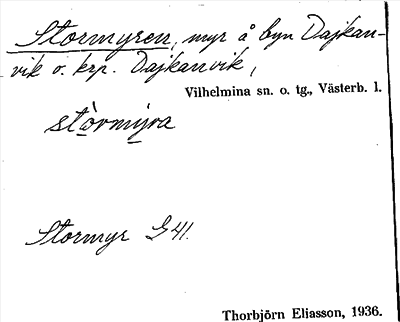 Stormyren, myr å byn Dajkan-
vik o. krp. Dajkanvik,
Vilhelmina sn. o. tg., Västerb. l.
stòrmýra
Stormyr G 41.
Thorbjörn Eliasson, 1936.